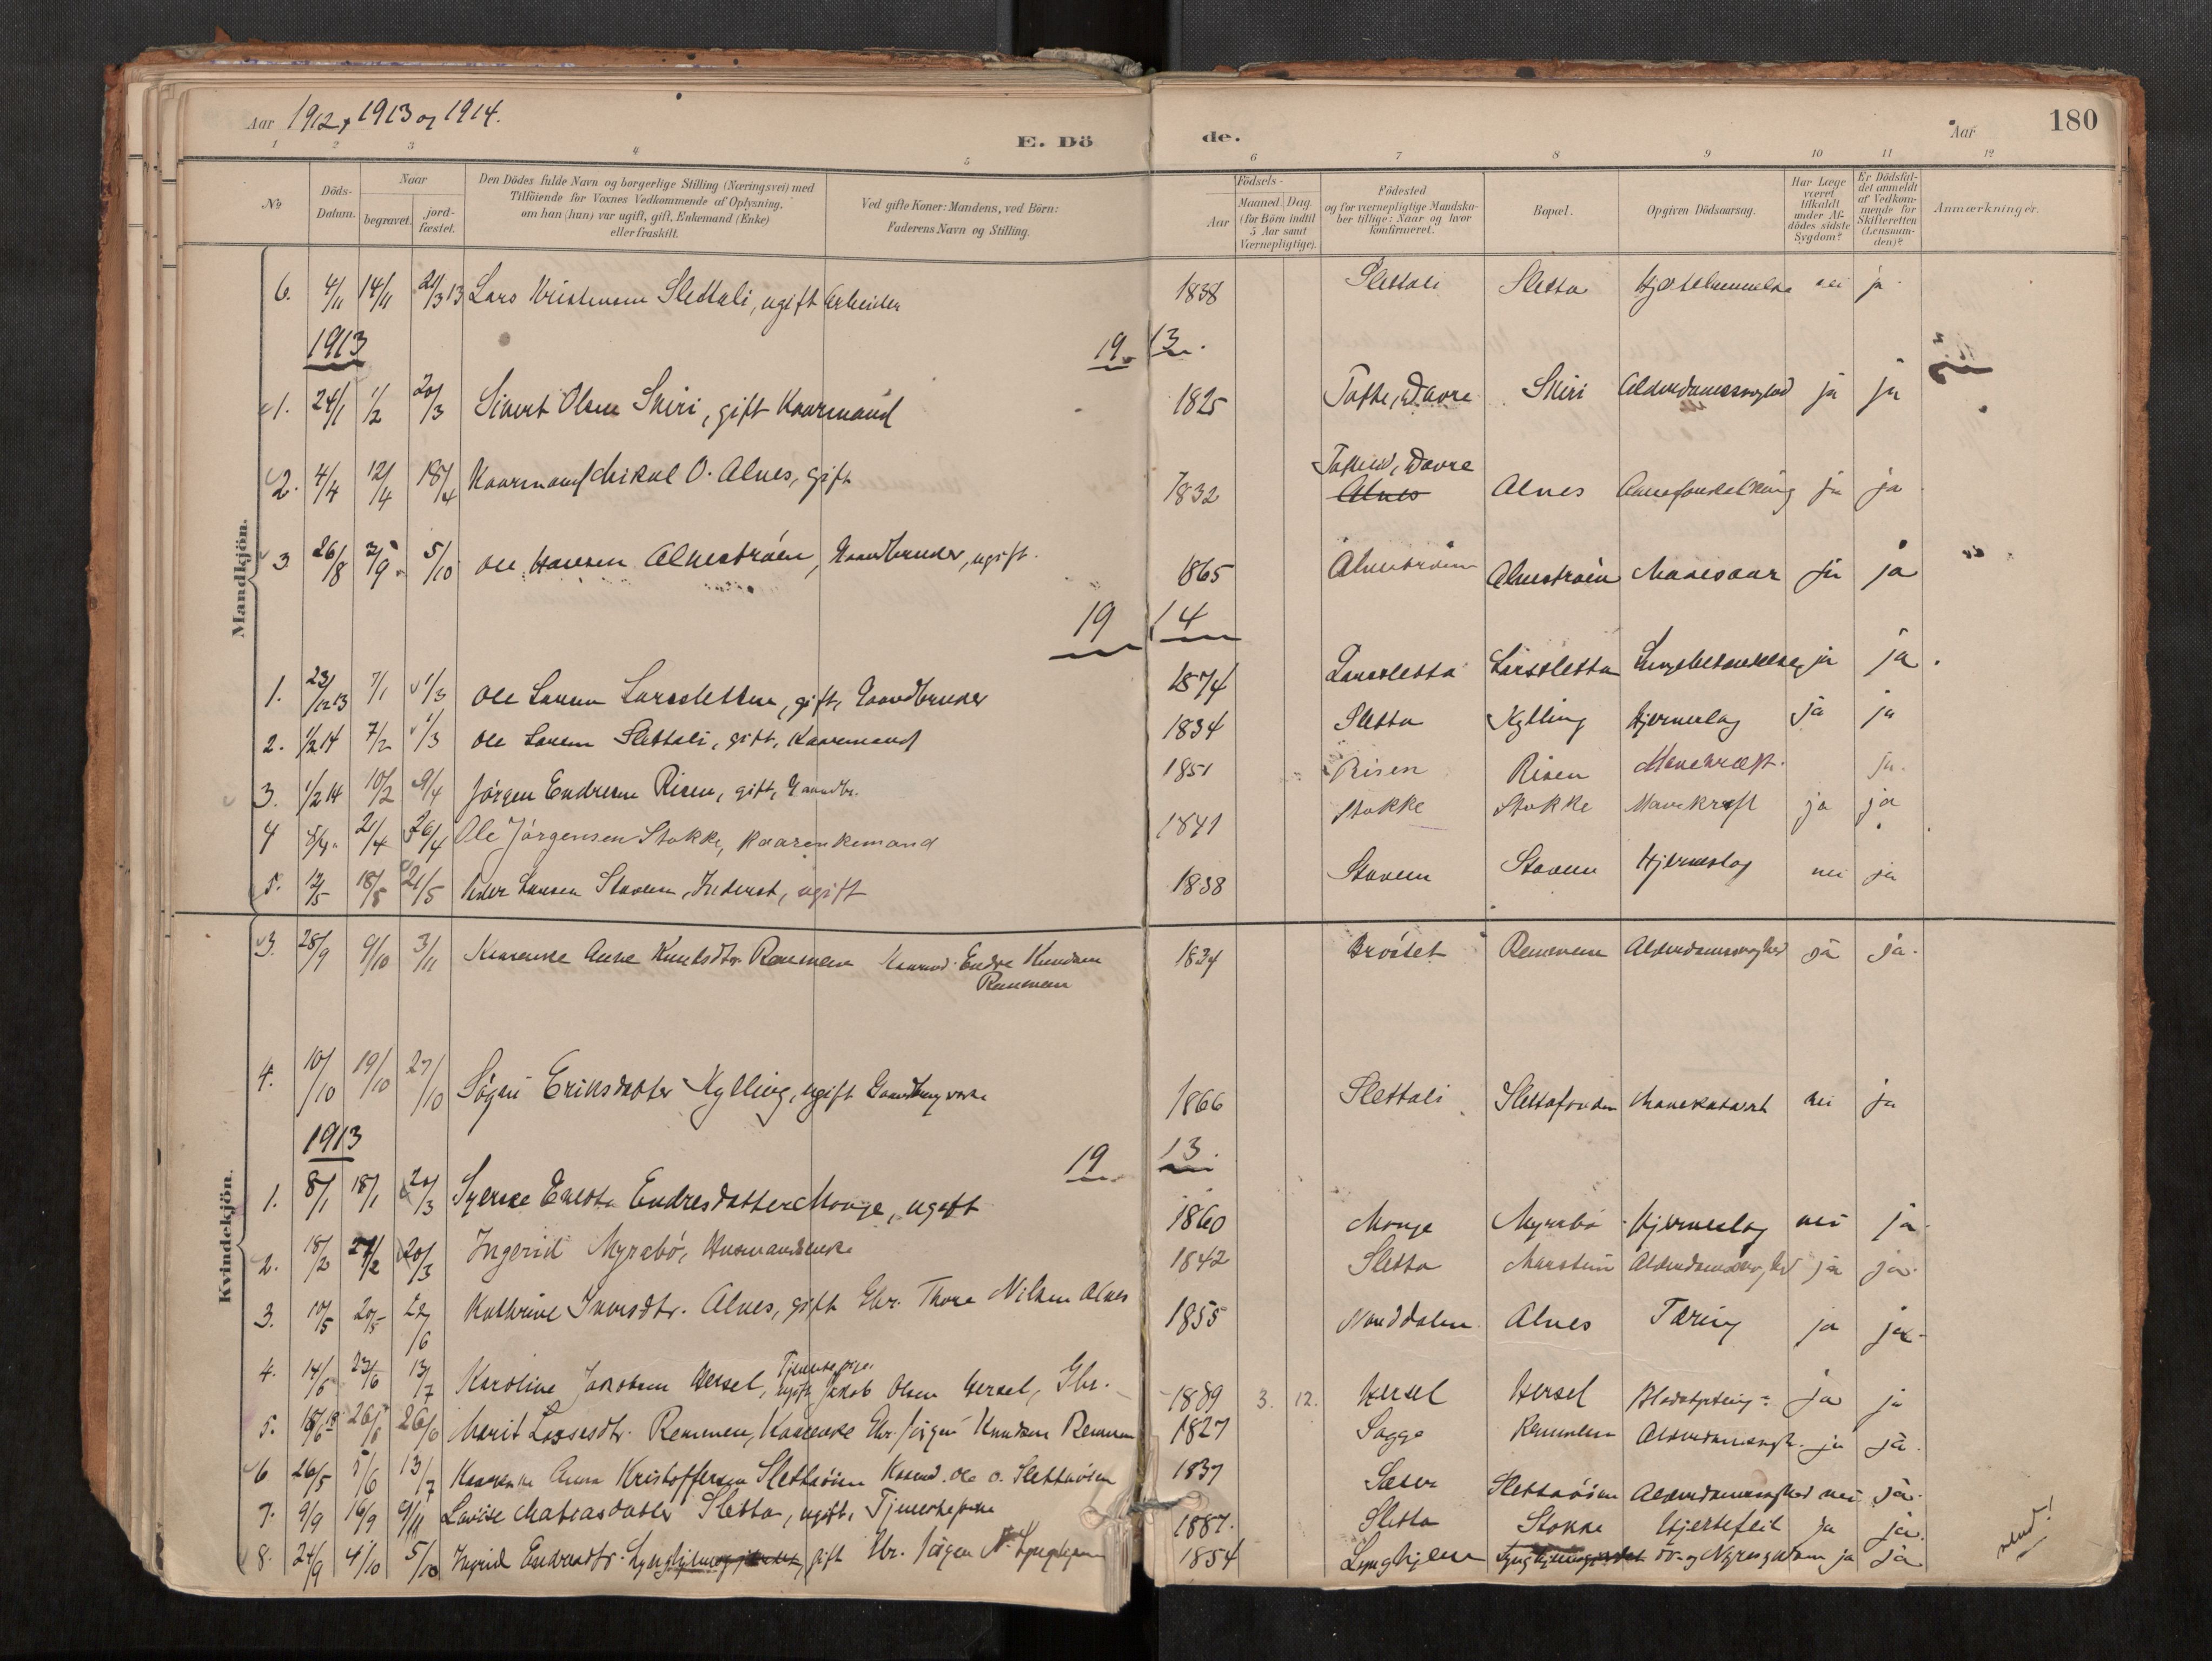 Aar 1912, 1913 og 1914.
E. Dö de.
Aar
180
1 2 3 4 5 6 7 8 9 10 11 12
No
Döds-Datum.
Naar
begravet.
jord-fæstet.
Den Dödes fulde Navn og borgerlige Stilling (Næringsvei) med
Tilföiende for Voxnes Vedkommende af Oplysning,
om han (hun) var ugift, gift, Enkemand (Enke)
eller fraskilt.
Ved gifte Koner: Mandens, ved Börn:
Faderens Navn og Stilling.
Födsels-
Aar
Maaned. Dag.
(for Börn indtil
5 Aar samt
Værnepligtige).
Födested
og for værnepligtige Mandska-
ber tillige: Naar og hvor
konfirmeret.
Bopæl.
Opgiven Dödsaarsag.
Har Læge
været
tilkaldt
under Af-
dödes sidste
Sygdom?
Er Dödsfal-
det anmeldt
af Vedkom-
mende for
Skifteretten
(Lensman-
den)?
Anmærkninger.
Mandkjön.
6. 4/11 14/11 20/3 13 Lars Slettali, ugift Arbeider 1838 Slettali Sletta nei ja
1913 19 13.
1. 24/1 1/2 20/3 Sivert Olsen Skiri, gift Kaarmand 1825 Tofte, Dovre Skiri Alderdomssvaghed ja ja
2. 4/4 12/4 18/4 Kaarmand Mikal O. Alnes, gift 1832 Dovre Alnes Alnes ja ja
3 26/8 2/9 5/10 Ole Hansen Alnestrøen, Gaardbruker, ugift. 1865 Alnestrøen Alnestrøen Mavesaar ja ja
19 14
1. 23/12 13 7/1 1/3 Ole Larsen Larssletten, gift, Gaardbruker 1874 Larssletta Larssletta Lungebetændelse ja ja.
2. 1/2 14 7/2 1/3 Ole Larsen Slettali, gift, Kaarmand 1834 Sletta Kylling Hjerneslag ja ja
3. 1/2 14 10/2 9/4 Jörgen Endresen Risen, gift, Gaardbr. 1851 Risen Risen Mavekræft. ja.
4 21/4 26/4 Ole Jörgensen Stokke, Kaarenkemand 1841 Stokke Stokke Mavekræft ja ja
5. 12/5 18/5 21/5 Peder Larsen Staven, Inderst, ugift 1838 Staven Staven Hjerneslag nei ja
Kvindekjön.
3. 28/9 9/10 3/11 Kaarenke Anne Knutsdtr. Remmen Kaarmd. Endre Knudsen
Remmen 1834 Brøstet Remmem Alderdomssvaghed ja ja.
4. 10/10 19/10 27/10 Sigri Eriksdatter Kylling, ugift 1866 Slettali Mavekatarrh nei ja
1913 19 13.
1. 8/1 18/1 20/3 Endresdatter Monge, ugift 1860 Monge Myrabø Hjerneslag nei ja
2. 18/2 27/2 20/3 Ingerid Myrabö, Husmandsenke 1842 Sletta Marstein Alderdomssvaghed ja ja.
3. 10/5 20/5 22/6 Kathrine Iversdtr. Alnes, gift Gbr. Thore Nilsen Alnes 1855 Norddalen Alnes Tæring ja ja.
4. 14/6 23/6 13/7 Karoline Jakobsen Hersel, Tjenestepige. ugift, Jakob Olsen Hersel, Gbr. 1889 3. 12. Hersel Hersel ja ja
5. 26/6 Marit Lassesdtr. Remmen, Kaarenke Gbr. Jörgen Knudsen Remmen 1827 Sogge Remmem ja ja.
6 26/5 5/6 13/7 Kaarenke Anna Kristoffersen Slettaøien Kaarmd. Ole O. Slettaøien 1837 Slettaøien Alderdomssvaghed nei ja.
7. 9/9 16/9 9/11 Lovise Matiasdatter Sletta, ugift, Tjenestepike 1887. Sletta Stokke Hjertefeil ja ja.
8. 24/9 4/10 5/10 Ingrid Endresdtr. gift Gbr. Jörgen N. Lyngheim 1854 Lyngheim ja ja
vend!